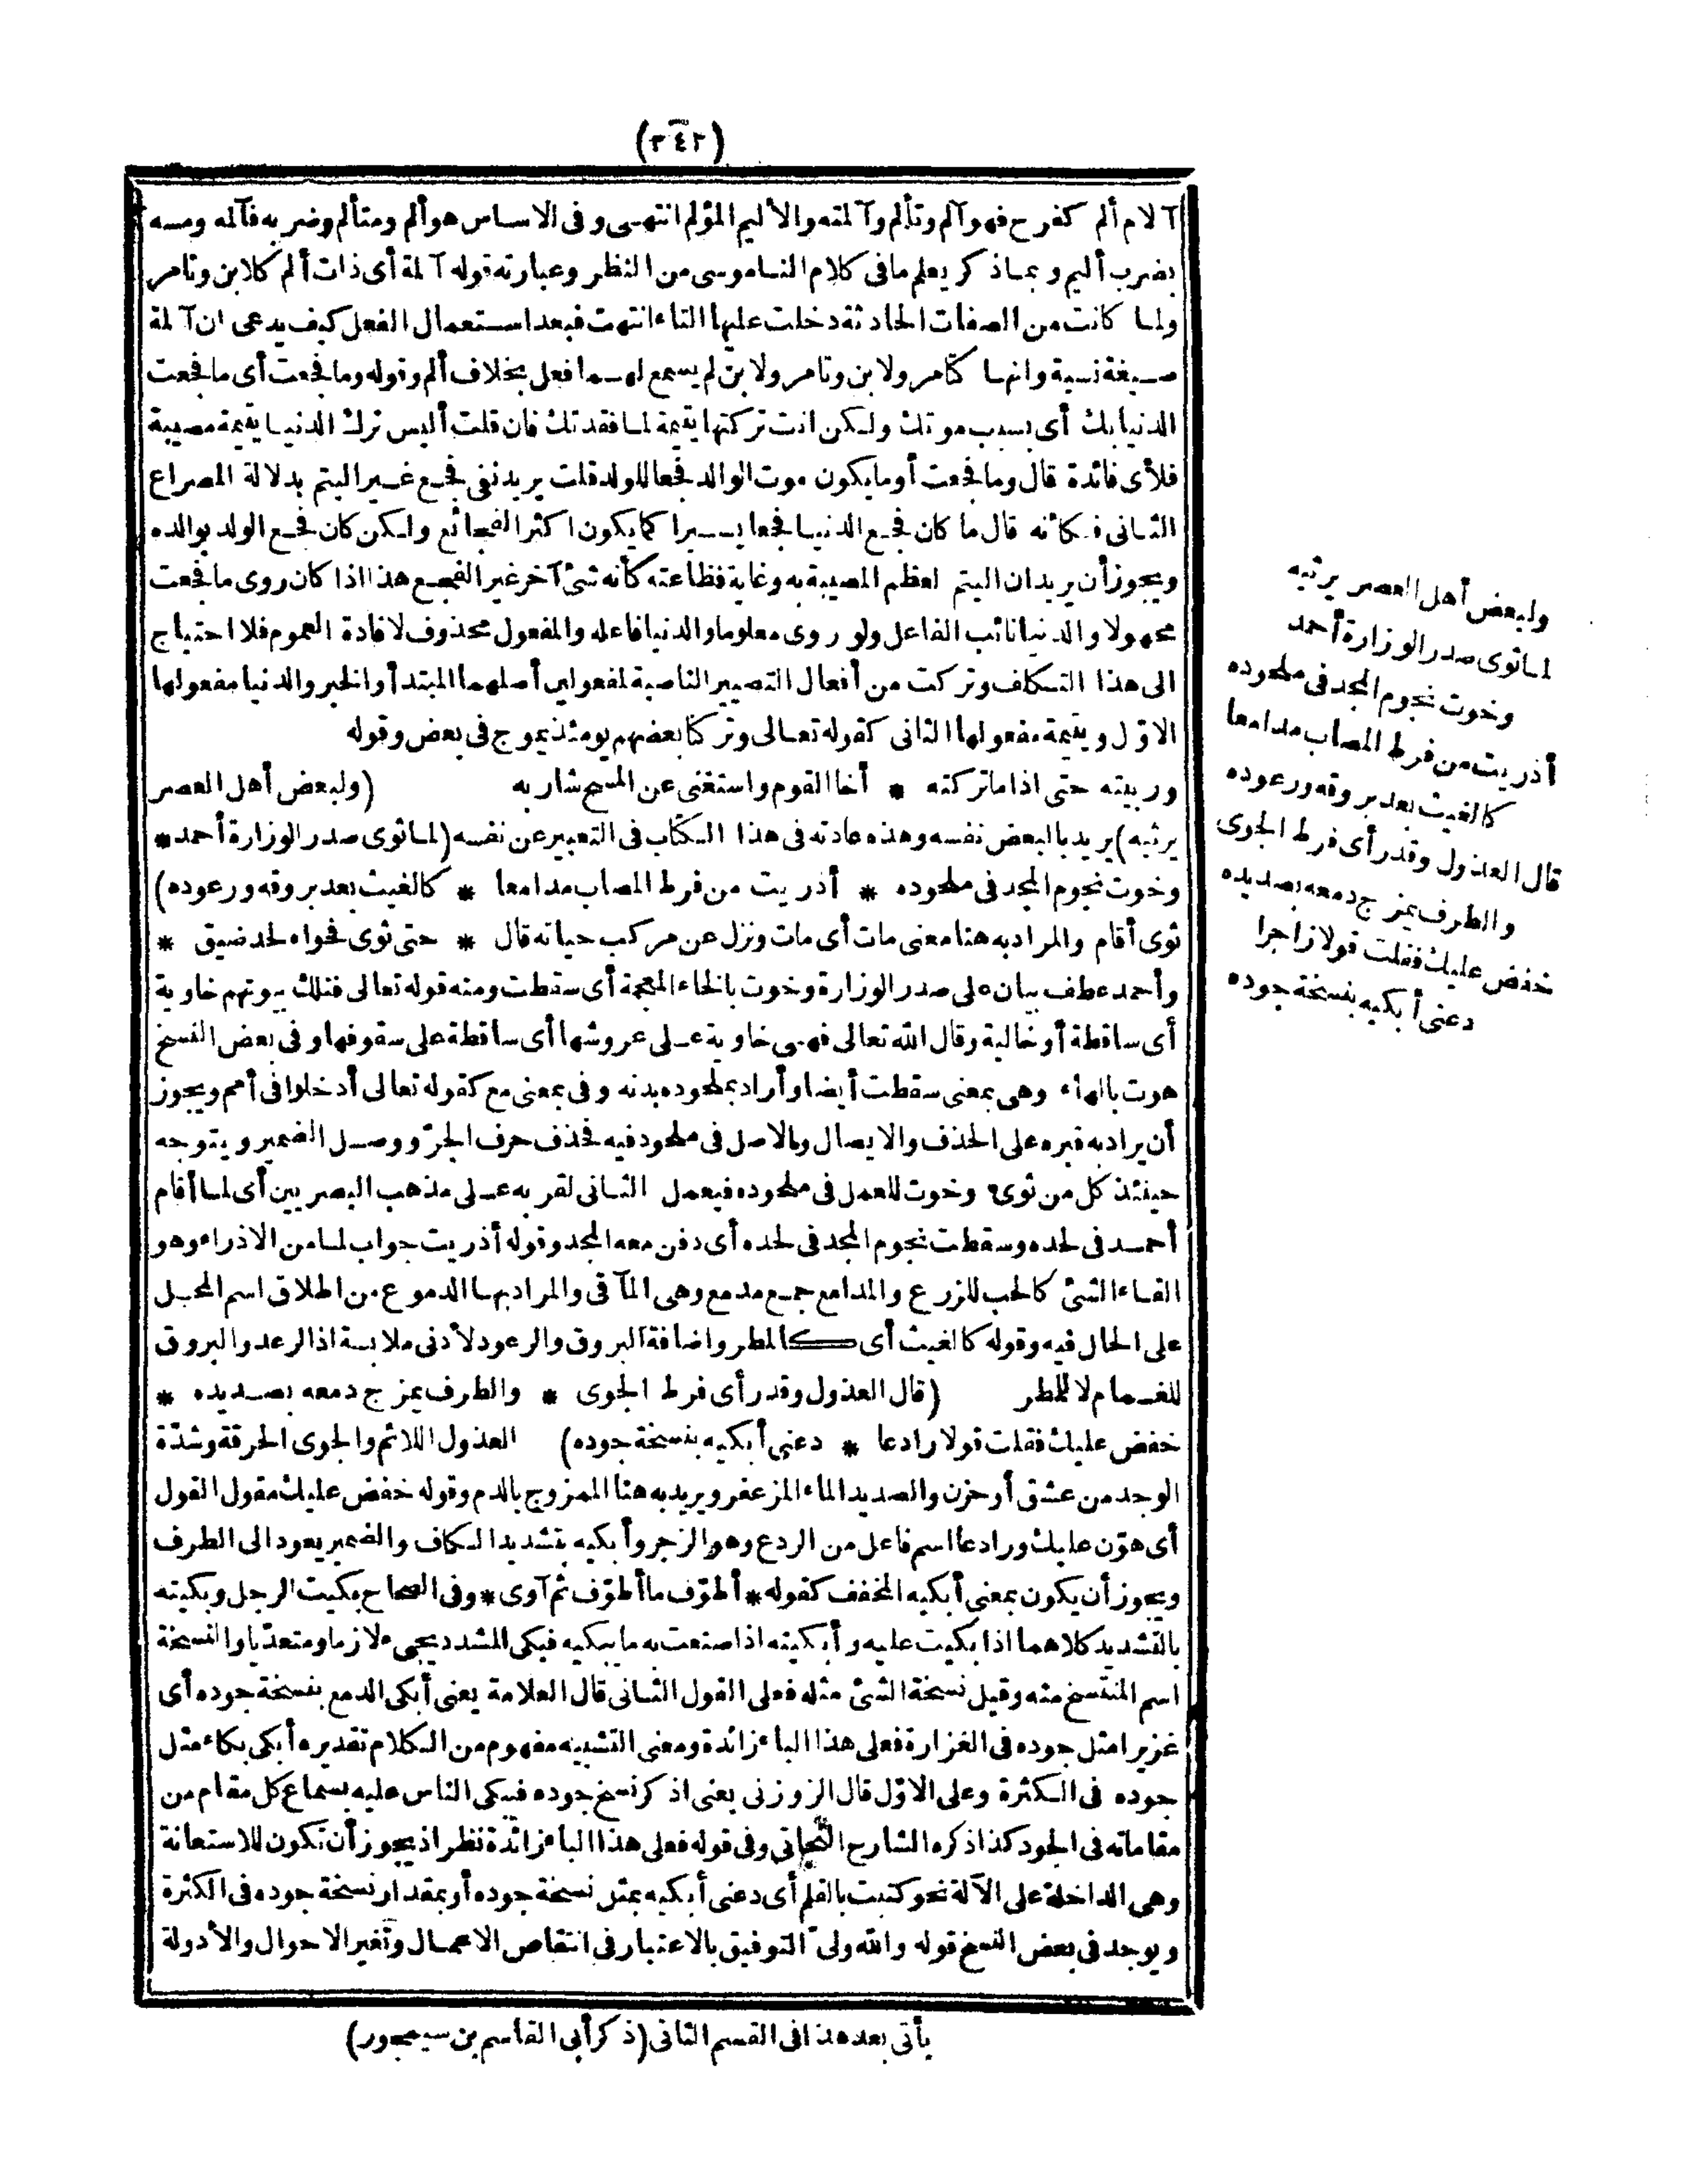 (٣٤٢)
آلام ألم كفرح فهو آلم وتألم وآلمته والأليم المؤلم انتهى وفى الاساس هو ألم ومتألم وضربه فآلمه ومسه
بضرب أليم وبماذكر يعلم مافى كلام الناموسى من النظر وعبارته قوله آلمة أى ذات ألم كلابن وتامر
ولما كانت من الصفات الحادثة دخلت عليها التاء انتهت فبعد استعمال الفعل كيف يدعى ان آلمة
صيغة نسبة وانها كتامر ولابن وتامر ولابن لم يسمع لهما فعل بخلاف ألم وقوله وما فجعت أى ما فجعت
الدنيا بك أى بسبب موتك ولكن انت تركتها يتيمة لما فقدتك فان قلت أليس ترك الدنيا يتيمة مصيبة
فلأى فائدة قال وما فجعت أوما يكون موت الوالد فجعا للولد قلت يريد نفى فجع غير اليتم بدلالة المصراع
الثانى فكانه قال ما كان فجع الدنيا فجعا يسيرا كما يكون اكثر الفجائع ولكن كان فجع الولد بوالده
ويجوز أن يريد ان اليتم لعظم المصيبة به وغاية فظاعته كأنه شئ آخر غير الفجع هذا اذا كان روى ما فجعت
مجهولا والدنيا نائب الفاعل ولو روى معلوما والدنيا فاعله والمفعول محذوف لافادة العموم فلا احتياج
الى هذا التكلف وتركت من أفعال التصيير الناصبة لمفعولين أصلهما المبتدأ والخبر والدنيا مفعولها
الاوّل ويتيمة مفعولها الثانى كقوله تعالى وتركنا بعضهم يومئذ يموج فى بعض وقوله
وربيته حتى اذا ماتركته * أخا القوم واستغنى عن المسح شاربه (ولبعض أهل العصر
يرثيه) يريد بالبعض نفسه وهذه عادته فى هذا الكتاب فى التعبير عن نفسه (لما ثوى صدر الوزارة أحمد *
وخوت نجوم المجد فى ملحوده * أذريت من فرط المصاب مدامعا * كالغيث بعد بروقه ورعوده)
ثوى أقام والمراد به هنا معنى مات أى مات ونزل عن مركب حياته قال * حتى ثوى فحواه لحد ضيق *
وأحمد عطف بيان على صدر الوزارة وخوت بالخاء المعجمة أى سقطت ومنه قوله تعالى فتلك بيوتهم خاوية
أى ساقطة أو خالية وقال الله تعالى فهى خاوية على عروشها أى ساقطة على سقوفها وفى بعض النسخ
هوت بالهاء وهى بمعنى سقطت أيضا وأراد بملحوده بدنه وفى بمعنى مع كقوله تعالى أدخلوا فى أمم ويجوز
أن يراد به قبره على الحذف والايصال والاصل فى ملحود فيه فحذف حرف الجرّ ووصل الضمير ويتوجه
حينئذ كل من ثوى وخوت للعمل فى ملحوده فيعمل الثانى لقربه على مذهب البصريين أى لما أقام
أحمد فى لحده وسقطت نجوم المجد فى لحده أى دفن معه المجد وقوله أذريت جواب لما من الاذراء وهو
القاء الشئ كالحب للزرع والمدامع جمع مدمع وهى المآقى والمراد بها الدموع من اطلاق اسم المحل
على الحال فيه وقوله كالغيث أى كالمطر واضافة البروق والرعود لأدنى ملابسة اذ الرعد والبروق
للغمام لا للمطر (قال العذول وقد رأى فرط الجوى * والطرف يمزج دمعه بصديده *
خفض عليك فقلت قولا رادعا * دعنى أبكيه بنسخة جوده) العذول اللائم والجوى الحرقة وشدّة
الوجد من عشق أو حزن والصديد الماء المزعفر ويريد به هنا الممزوج بالدم وقوله خفض عليك مقول القول
أى هوّن عليك ورادعا اسم فاعل من الردع وهو الزجر وأبكيه بتشديد الكاف والضمير يعود الى الطرف
ويجوز أن يكون بمعنى أبكيه المخفف كقوله * أطوّف ما أطوّف ثم آوى * وفى الصحاح بكيت الرجل وبكيته
بالتشديد كلاهما اذا بكيت عليه وأبكيته اذا صنعت به ما يبكيه فبكى المشدد يجىء لازما ومتعدّيا والنسخة
اسم المنتسخ منه وقيل نسخة الشئ مثله فعلى القول الثانى قال العلامة يعنى أبكى الدمع بنسخة جوده أى
غزيرا مثل جوده فى الغزارة فعلى هذا الباء زائدة ومعنى التشبيه مفهوم من الكلام تقديره أبكى بكاء مثل
جوده فى الكثرة وعلى الاوّل قال الزوزنى يعنى اذكر نسخ جوده فيبكى الناس عليه بسماع كل مقام من
مقاماته فى الجود كذا ذكره الشارح النجاتى وفى قوله فعلى هذا الباء زائدة نظر اذ يجوز أن تكون للاستعانة
وهى الداخلة على الآلة نحو كتبت بالقلم أى دعنى أبكيه بمثل نسخة جوده أو بمقدار نسخة جوده فى الكثرة
ويوجد فى بعض النسخ قوله والله ولى التوفيق بالاعتبار فى انتقاص الاعمال وتغير الاحوال والأدولة
يأتى بعد هذا فى القسم الثانى (ذكر أبى القاسم بن سيمجور)
ولبعض أهل العصر يرثيه
لما ثوى صدر الوزارة أحمد
وخوت نجوم المجد فى ملحوده
أذريت من فرط المصاب مدامعا
كالغيث بعد بروقه ورعوده
قال العذول وقد رأى فرط الجوى
والطرف يمزج دمعه بصديده
خفض عليك فقلت قولا زاجرا
دعنى أبكيه بنسخة جوده